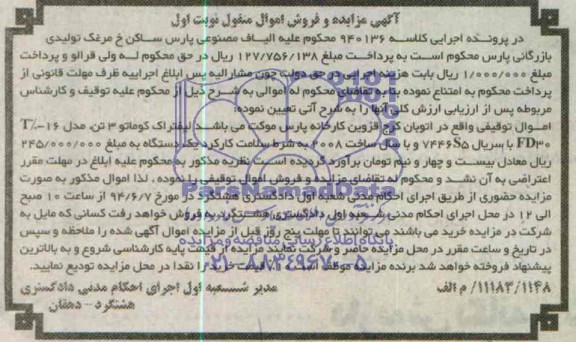 آگهی مزایده و فروش اموال منقول نوبت اول
در پرونده اجرایی کلاسه ۹۴۰۱۳۶ محکوم علیه الیاف مصنوعی پارس ساکن خ مرغک تولیدی
بازرگانی پارس محکوم است به پرداخت مبلغ ۱۲۷/۷۵۶/۱۳۸ ریال در حق محکوم له ولی قرالو و پرداخت
مبلغ ۱/۰۰۰/۰۰۰ ریال بابت هزینه اجرایی در حق دولت چون مشارالیه پس ابلاغ اجراییه ظرف مهلت قانونی از
پرداخت محکوم به امتناع نموده بنا به تقاضای محکوم له اموالی به شرح ذیل از محکوم علیه توقیف و کارشناس
مربوطه پس از ارزیابی ارزش کلی آنها را به شرح آتی تعیین نموده:
اموال توقیفی واقع در اتوبان کرج قزوین کارخانه پارس موکت می باشد. لیفتراک کوماتو ۳ تن، مدل T%-۱۶
FD۳۰ با سریال ۷۴۴۶S۵ و با سال ساخت ۲۰۰۸ به شرط سلامت کارکرد یکدستگاه به مبلغ ۲۴۵/۰۰۰/۰۰۰
ریال معادل بیست و چهار و نیم تومان برآورد گردیده است نظریه مذکور به محکوم علیه ابلاغ در مهلت مقرر
اعتراضی به آن نشد و محکوم له تقاضای مزایده و فروش اموال توقیف را نموده، لذا اموال مذکور به صورت
مزایده حضوری از طریق اجرای احکام مدنی شعبه اول دادگستری هشتگرد در مورخ ۹۴/۶/۷ از ساعت ۱۰ صبح
الی ۱۲ در محل اجرای احکام مدنی شعبه اول دادگستری هشتگرد به فروش خواهد رفت کسانی که مایل به
شرکت در مزایده خرید می باشند می توانند تا مهلت پنج روز قبل از مزایده اموال آگهی شده را ملاحظه و سپس
در تاریخ و ساعت مقرر در محل مزایده حاضر و شرکت نمایند مزایده از قیمت پایه کارشناسی شروع و به بالاترین
پیشنهاد فروخته خواهد شد برنده مزایده موظف است قیمت خرید را نقدا در محل مزایده تودیع نمایید.
۱۱۱۸۳/۱۱۴۸/ م الف
مدیر شعبه اول اجرای احکام مدنی دادگستری
هشتگرد - دهقان
ParsNamadData
پایگاه اطلاع رسانی مناقصه و مزایده
۰۲۱-۸۸۳۴۹۶۷۰-۵